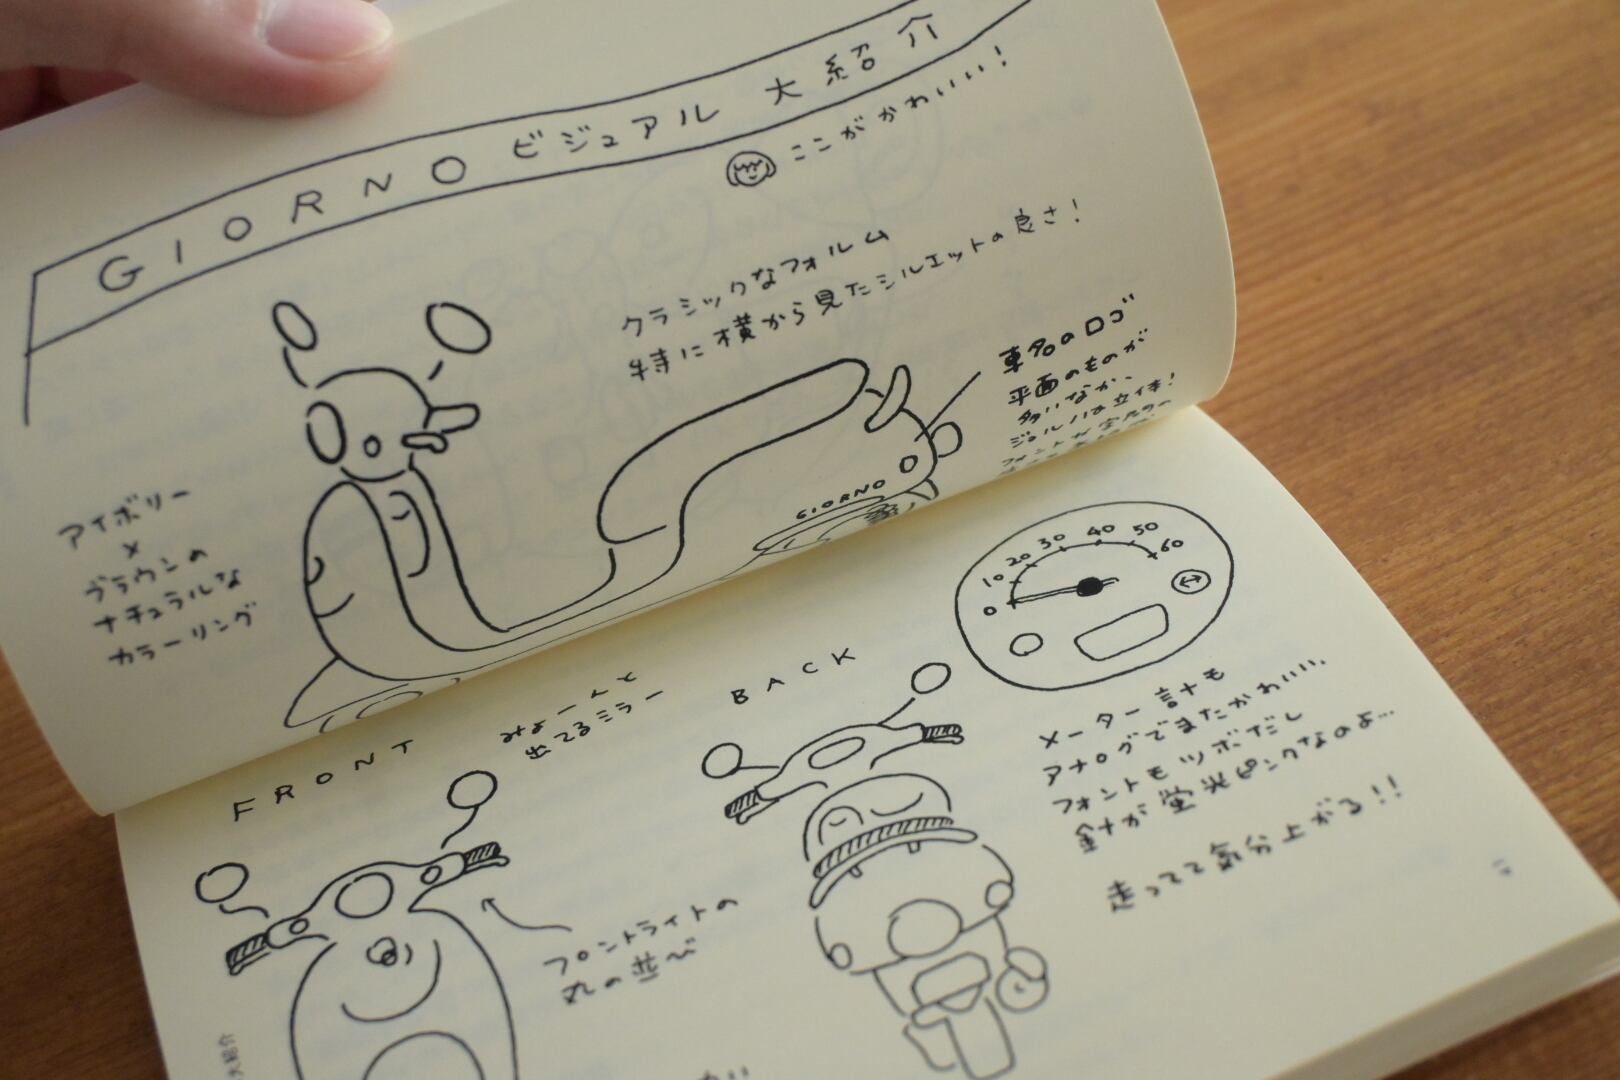 GIORNO ビジュアル 大紹介
ここがかわいい!
クラシックなフォルム
特に横から見たシルエットの良さ!
車名のロゴ
平面のものが
多いなか、
ジョルノは立体!
フォントが
アイボリー
×
ブラウンの
ナチュラルな
カラーリング
GIORNO
FRONT
みょーんと
出てるミラー
BACK
0 10 20 30 40 50 60
メーター計も
アナログでまたかわいい。
フォントもツボだし
針が蛍光ピンクなのよ…
走ってて気分上がる!!
フロントライトの
丸の並び
大紹介